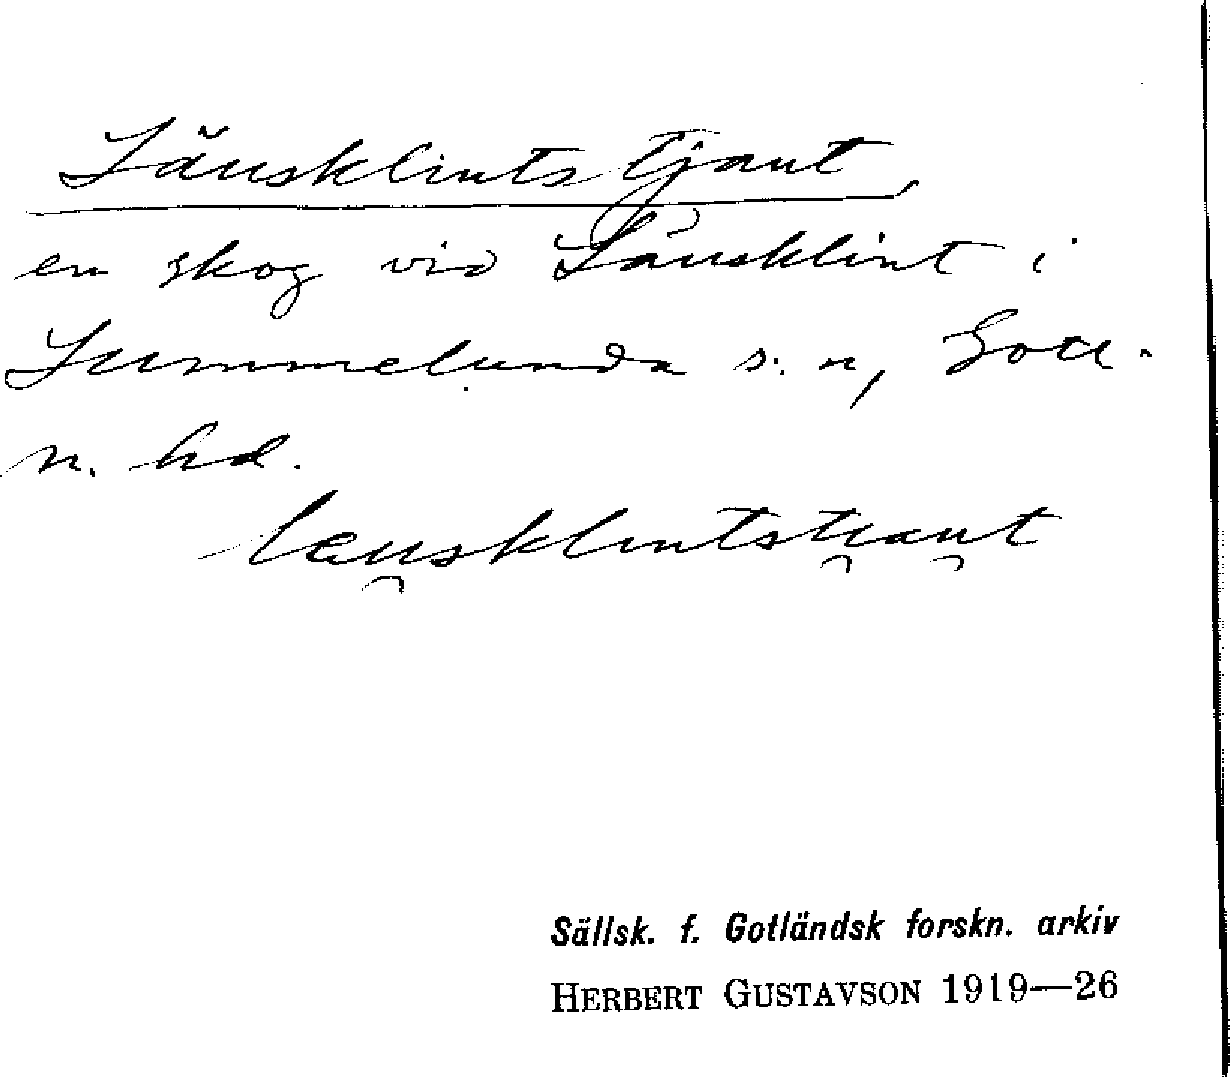 Läusklints tjaut,
en skog vid Läusklint i
Lummelunda s:n, Gotl.
n. hd.
læu̯sklintsti̯au̯t
Sällsk. f. Gotländsk forskn. arkiv
HERBERT GUSTAVSON 1919—26